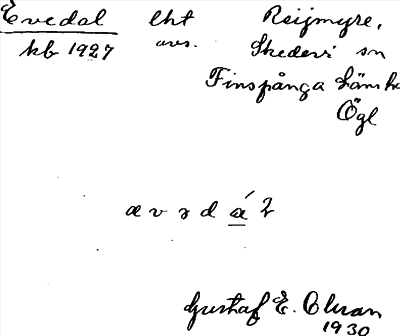 Evedal lht Reijmyre,
kb 1927 avs. Skedevi sn
Finspånga läns hd
Ögl
Gustaf E. Clvan
1930